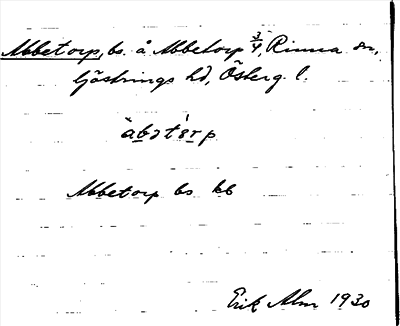 Abbetorp, bs. å Abbetorp 3/4, Rinna sn,
Göstrings hd, Österg. l.
àbət'ərp
Abbetorp bs kb
Erik Alm 1930